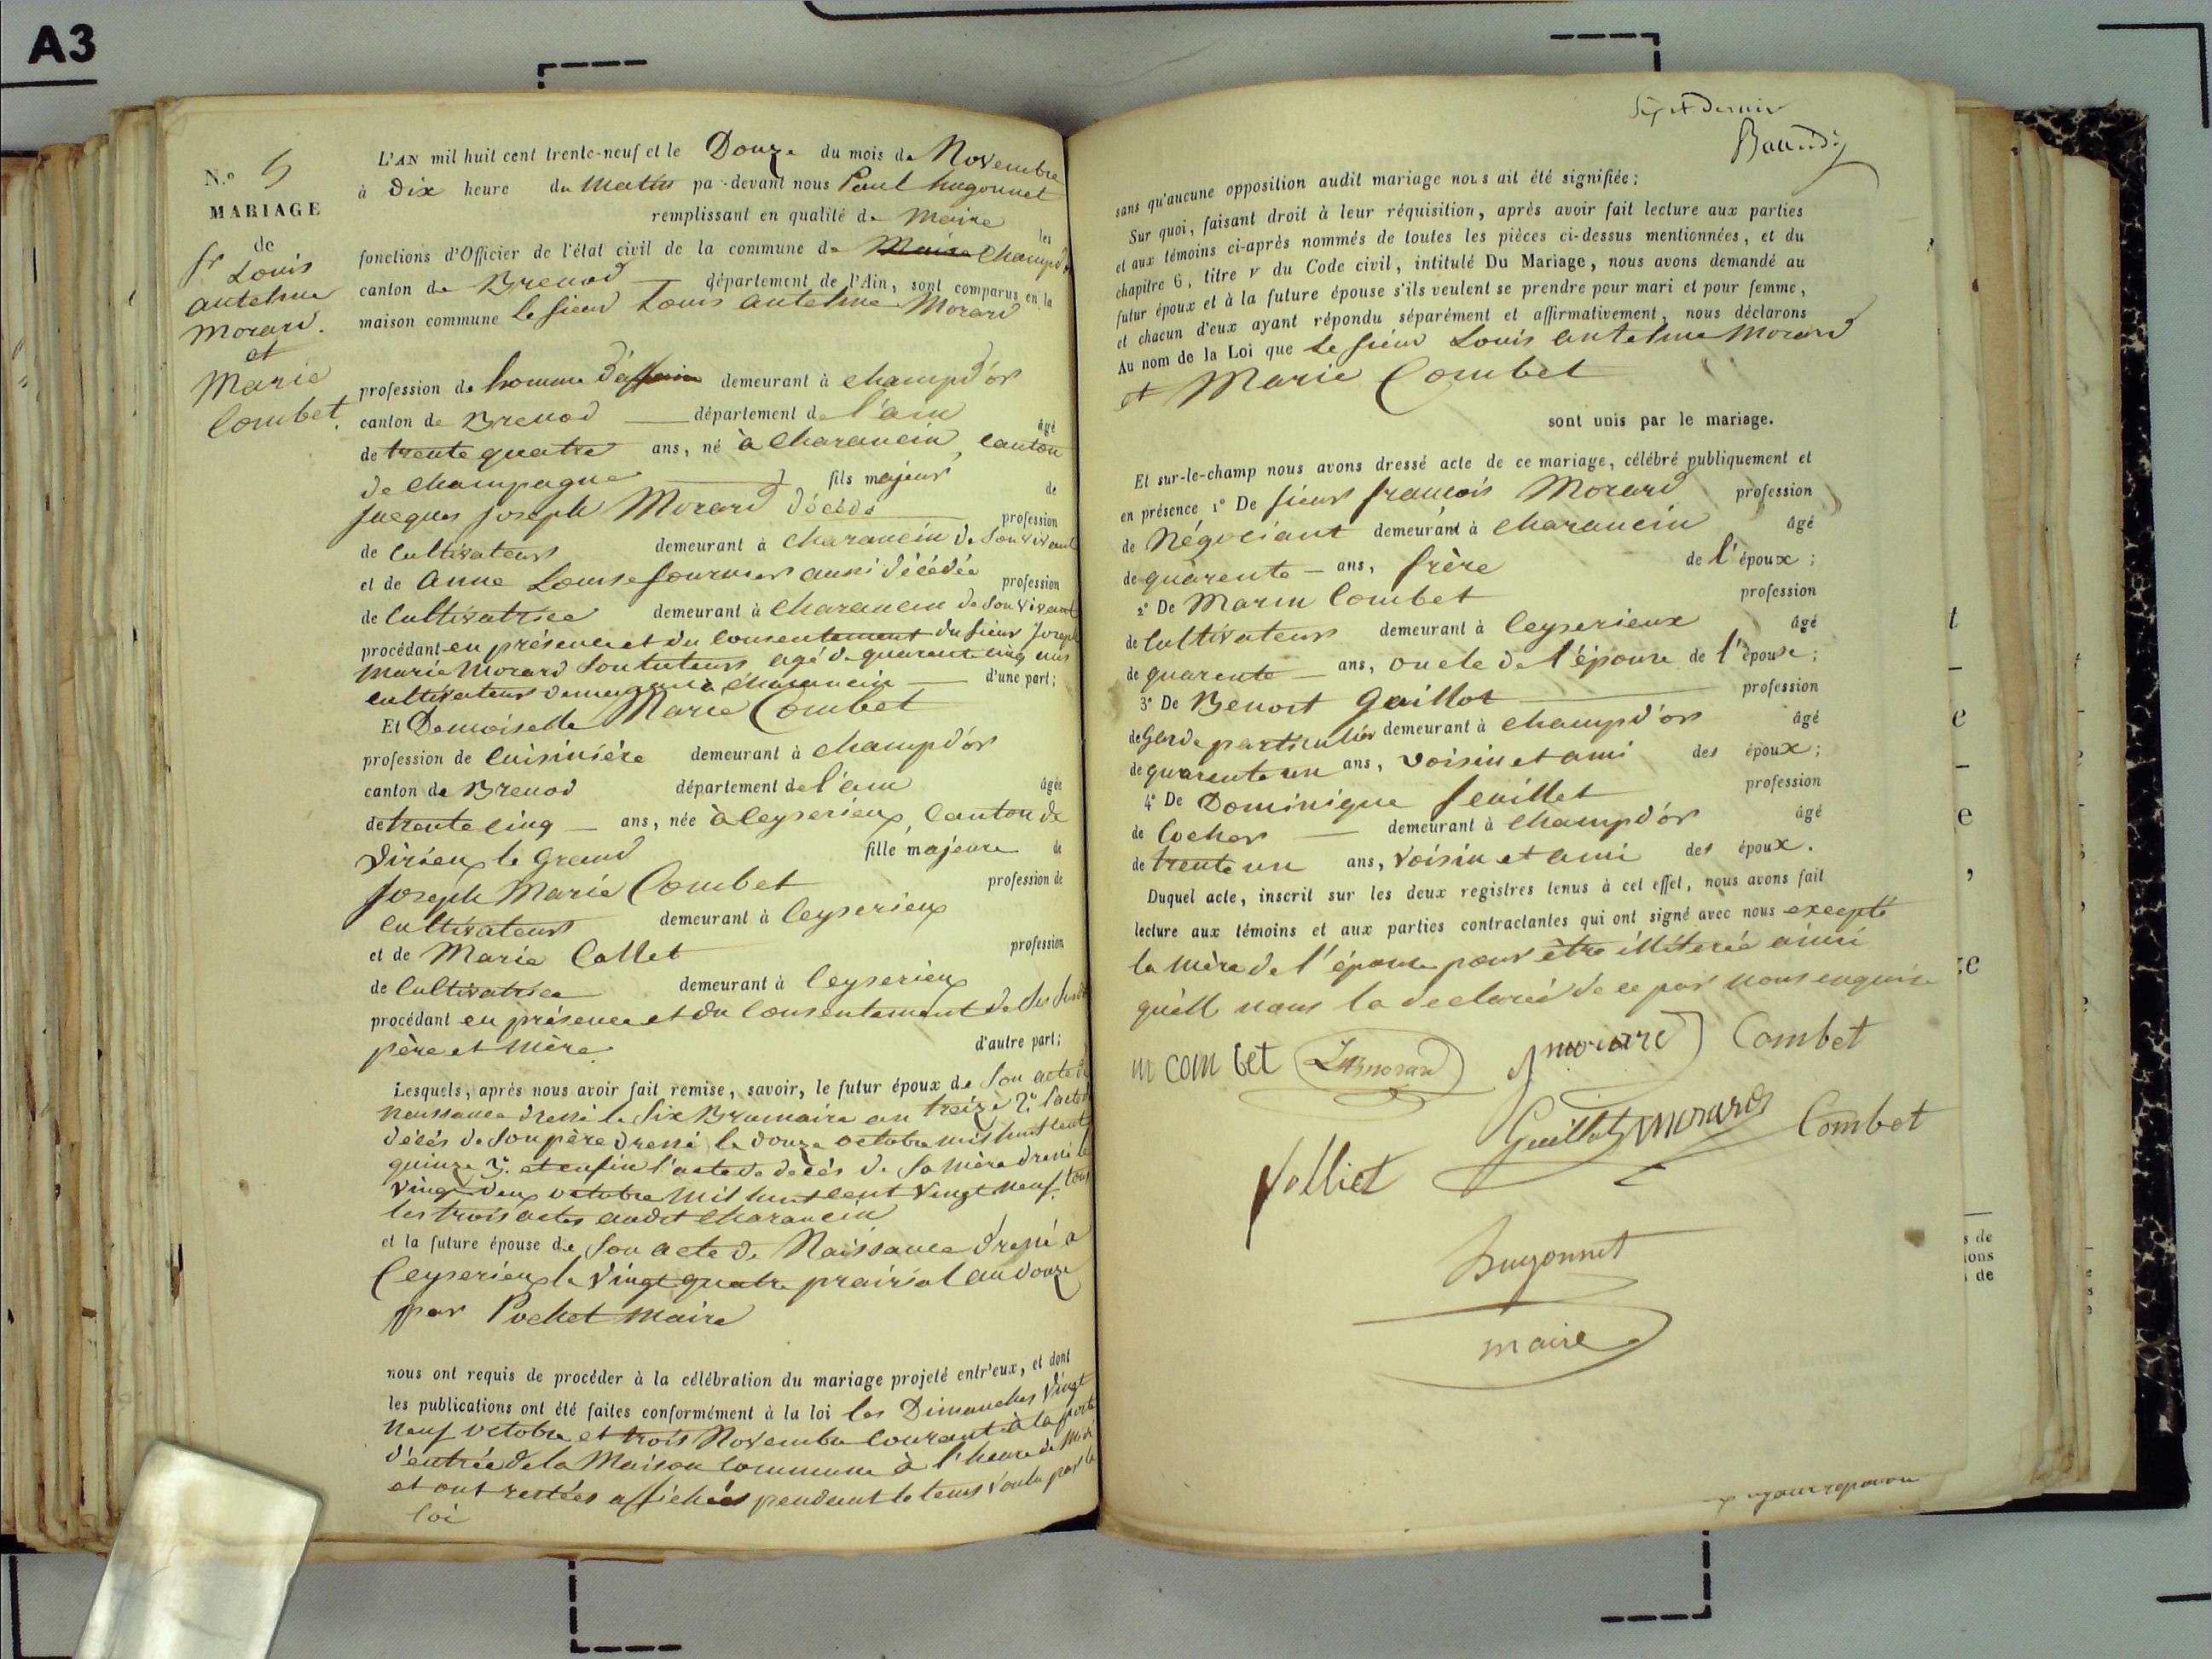 A3
N.o 5
MARIAGE
de
Sr Louis
antelme
Morard.
et
Marie
Combet.
L'AN mil huit cent trente-neuf et le Douze du mois de Novembre
à Dix heure du Matin pa-devant nous Paul hugonnet
remplissant en qualité de Maire les
fonctions d'Officier de l'état civil de la commune de Maire Champd'or
canton de Brenod département de l'Ain, sont comparus en la
maison commune le sieur Louis antelme Morard
profession de homme d'affaire demeurant à champd'or
canton de Brenod département de l'ain âgé
de trente quatre ans, né à Charancin, canton
de Champagne fils majeur de
Jacques Joseph Morard décédé profession
de Cultivateur demeurant à Charancin de Son vivant
et de Anne Louise fournier aussi décédée profession
de Cultivatrice demeurant à Charancin de Son vivant
procédant en présence et du Consentement du sieur Joseph
Marie Morard Son tuteur, agé de quarente cinq ans
cultivateur demeurant à charancin d'une part;
Et Demoiselle Marie Combet
profession de Cuisinière demeurant à champd'or
canton de Brenod département de l'ain âgée
de trente cinq ans, née à Ceyserieux, Canton de
Virieux le Grand fille majeure de
Joseph Marie Combet profession de
Cultivateur demeurant à Ceyserieux
et de Marie Collet profession
de Cultivatrice demeurant à Ceyserieux
procédant en présence et du Consentement de Ses Susdits
père et Mère. d'autre part;
Lesquels, après nous avoir fait remise, savoir, le futur époux de Son acte de
Naissance dressé le Six Brumaire an treize 2.o l'acte de
décés de Son père dressé le douze octobre mil huit cent
quinze 3.o et enfin l'acte de décés de Sa Mère dressé le
Vingt deux octobre Mil huit cent Vingt Neuf. tous
les trois actes audit Charancin
et la future épouse de Son acte de Naissance dressé a
Ceyserieux le Vingt quatre prairial an douze
par Pochet Maire
nous ont requis de procéder à la célébration du mariage projeté entr'eux, et dont
les publications ont été faites conformément à la loi les Dimanches Vingt
Neuf octobre et trois Novembre Courant à la porte
d'entrée de la Maison Commune à l'heure de Midi
et ont restées affichées pendant le tems Voulu par la
loi
Six et Dernier
sans qu'aucune opposition audit mariage nous ait été signifiée;
Sur quoi, faisant droit à leur réquisition, après avoir fait lecture aux parties
et aux témoins ci-après nommés de toutes les pièces ci-dessus mentionnées, et du
chapitre 6, titre V du Code civil, intitulé Du Mariage, nous avons demandé au
futur époux et à la future épouse s'ils veulent se prendre pour mari et pour femme,
et chacun d'eux ayant répondu séparément et affirmativement, nous déclarons
Au nom de la Loi que le sieur Louis antelme Morard
et Marie Combet
sont unis par le mariage.
Et sur-le-champ nous avons dressé acte de ce mariage, célébré publiquement et
en présence 1° De sieur françois Morard profession
de Négociant demeurant à Charancin âgé
de quarente ans, frère de l'époux;
2° De Marin Combet profession
de Cultivateur demeurant à Ceyserieux âgé
de quarente ans, oncle de l'épouse de l'épouse;
3° De Benoit Guillot profession
de Garde particulier demeurant à champd'or âgé
de quarente un ans, voisin et ami des époux;
4° De Dominique feuillet profession
de Cocher demeurant à Champd'or âgé
de trente un ans, Voisin et ami des époux.
Duquel acte, inscrit sur les deux registres tenus à cet effet, nous avons fait
lecture aux témoins et aux parties contractantes qui ont signé avec nous excepté
la Mère de l'épouse pour être illiterée ainsi
qu'ell nous la declaré de ce par nous enquise
m combet Morard Morard Combet
Guillot Morard Combet
hugonnet
maire